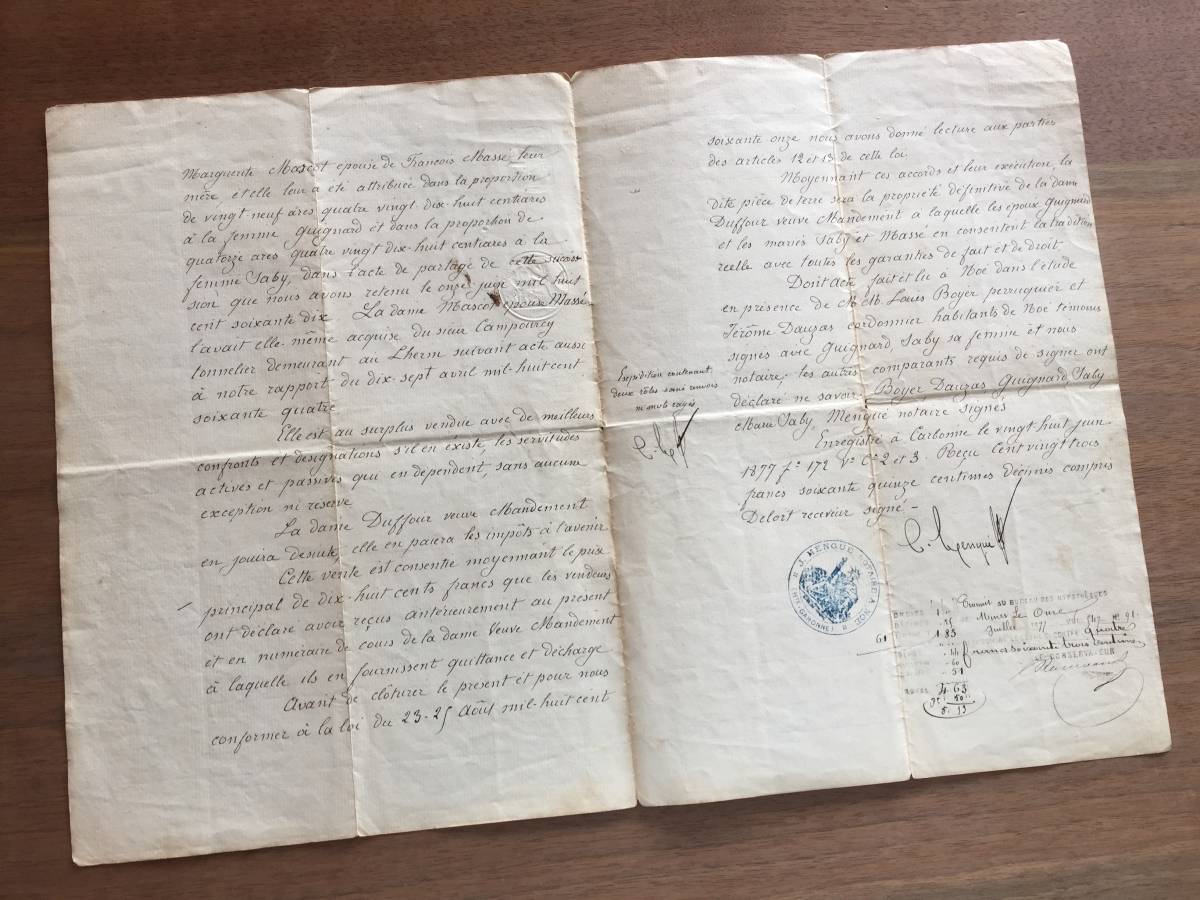 Marguerite Mascot epouse de Francois Massé, leur
mère, et elle leur a été attribuée dans la proportion
de vingt-neuf ares quatre vingt dix-huit centiares
à la femme Guignard et dans la proportion de
quatorze ares quatre vingt dix-huit centiares à la
femme Saby, dans l'acte de partage de cette succes
sion que nous avons retenu le onze juin mil huit
cent soixante dix La dame Mascot epouse Massé
l'avait elle-même acquise du sieur Campourcy
tonnelier demeurant au Lherm suivant acte aussi
à notre rapport du dix-sept avril mil-huit cent
soixante quatre
Elle est au surplus vendue avec de meilleurs
confronts et designations s'il en existe, les servitudes
actives et passives qui en dépendent, sans aucune
exception ni reserve
La dame Duffour veuve Mandement
en jouira desuite, elle en paiera les impôts à l'avenir
Cette vente est consentie moyennant le prix
principal de dix-huit cents francs que les vendeurs
ont déclaré avoir reçus antérieurement au present
et en numéraire de cours de la dame Veuve Mandement
à laquelle ils en fournissent quittance et décharge
Avant de clôturer le present et pour nous
conformer à la loi du 23-25 Août mil-huit cent
Expédition contenant
deux rôles sans renvois
ni mots rayés
soixante onze nous avons donné lecture aux parties
des articles 12 et 13 de cette loi.
Moyennant ces accords et leur exécution, la
dite pièce de terre sera la propriété définitive de la dame
Duffour veuve Mandement à laquelle les époux Guignard
et les mariés Saby et Massé en consentent la tradition
reelle avec toutes les garanties de fait et de droit
Dont acte fait et lu à Noé dans l'étude
en présence de M.M. Louis Boyer perruquier et
Jérôme Dauzas cordonnier habitants de Noé témoins
signés avec Guignard, Saby sa femme et nous
notaire; les autres comparants requis de signer ont
déclaré ne savoir Boyer Dauzas Guignard, Saby
Marie Saby, Mengué notaire signés
Enregistré à Carbonne le vingt huit juin
1877 fo 172 Vo Co 2 et 3. Reçu cent vingt trois
francs soixante quinze centimes décimes compris
Delort receveur signé -
C. Mengué
J. MENGUE NOTAIRE A NOÉ
(HTE GARONNE)
61
Transcrit AU BUREAU DES HYPOTHÈQUES
Juillet 1877 No 91
1.85
quatre
francs soixante trois centimes
LE CONSERVATEUR
.60
.51
4 63
50
5.13